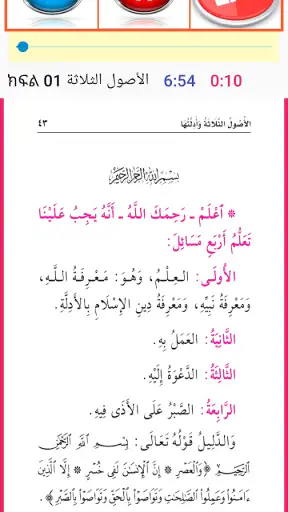 ክፍል 01 الأصول الثلاثة 6:54 0:10
الأُصُولُ الثَّلَاثَةُ وَأَدِلَّتُهَا ٤٣
بِسْمِ اللَّهِ الرَّحْمَنِ الرَّحِيمِ
* ٱعْلَمْ ـ رَحِمَكَ اللَّهُ ـ أَنَّهُ يَجِبُ عَلَيْنَا
تَعَلُّمُ أَرْبَعِ مَسَائِلَ:
الأُولَى: العِلْمُ، وَهُوَ: مَعْرِفَةُ اللَّهِ،
وَمَعْرِفَةُ نَبِيِّهِ، وَمَعْرِفَةُ دِينِ الإِسْلَامِ بِالأَدِلَّةِ.
الثَّانِيَةُ: العَمَلُ بِهِ.
الثَّالِثَةُ: الدَّعْوَةُ إِلَيْهِ.
الرَّابِعَةُ: الصَّبْرُ عَلَى الأَذَى فِيهِ.
وَالدَّلِيلُ قَوْلُهُ تَعَالَى: بِسْمِ ٱللَّهِ ٱلرَّحْمَٰنِ
ٱلرَّحِيمِ ﴿وَٱلْعَصْرِ * إِنَّ ٱلْإِنسَٰنَ لَفِى خُسْرٍ * إِلَّا ٱلَّذِينَ
ءَامَنُوا۟ وَعَمِلُوا۟ ٱلصَّٰلِحَٰتِ وَتَوَاصَوْا۟ بِٱلْحَقِّ وَتَوَاصَوْا۟ بِٱلصَّبْرِ﴾.